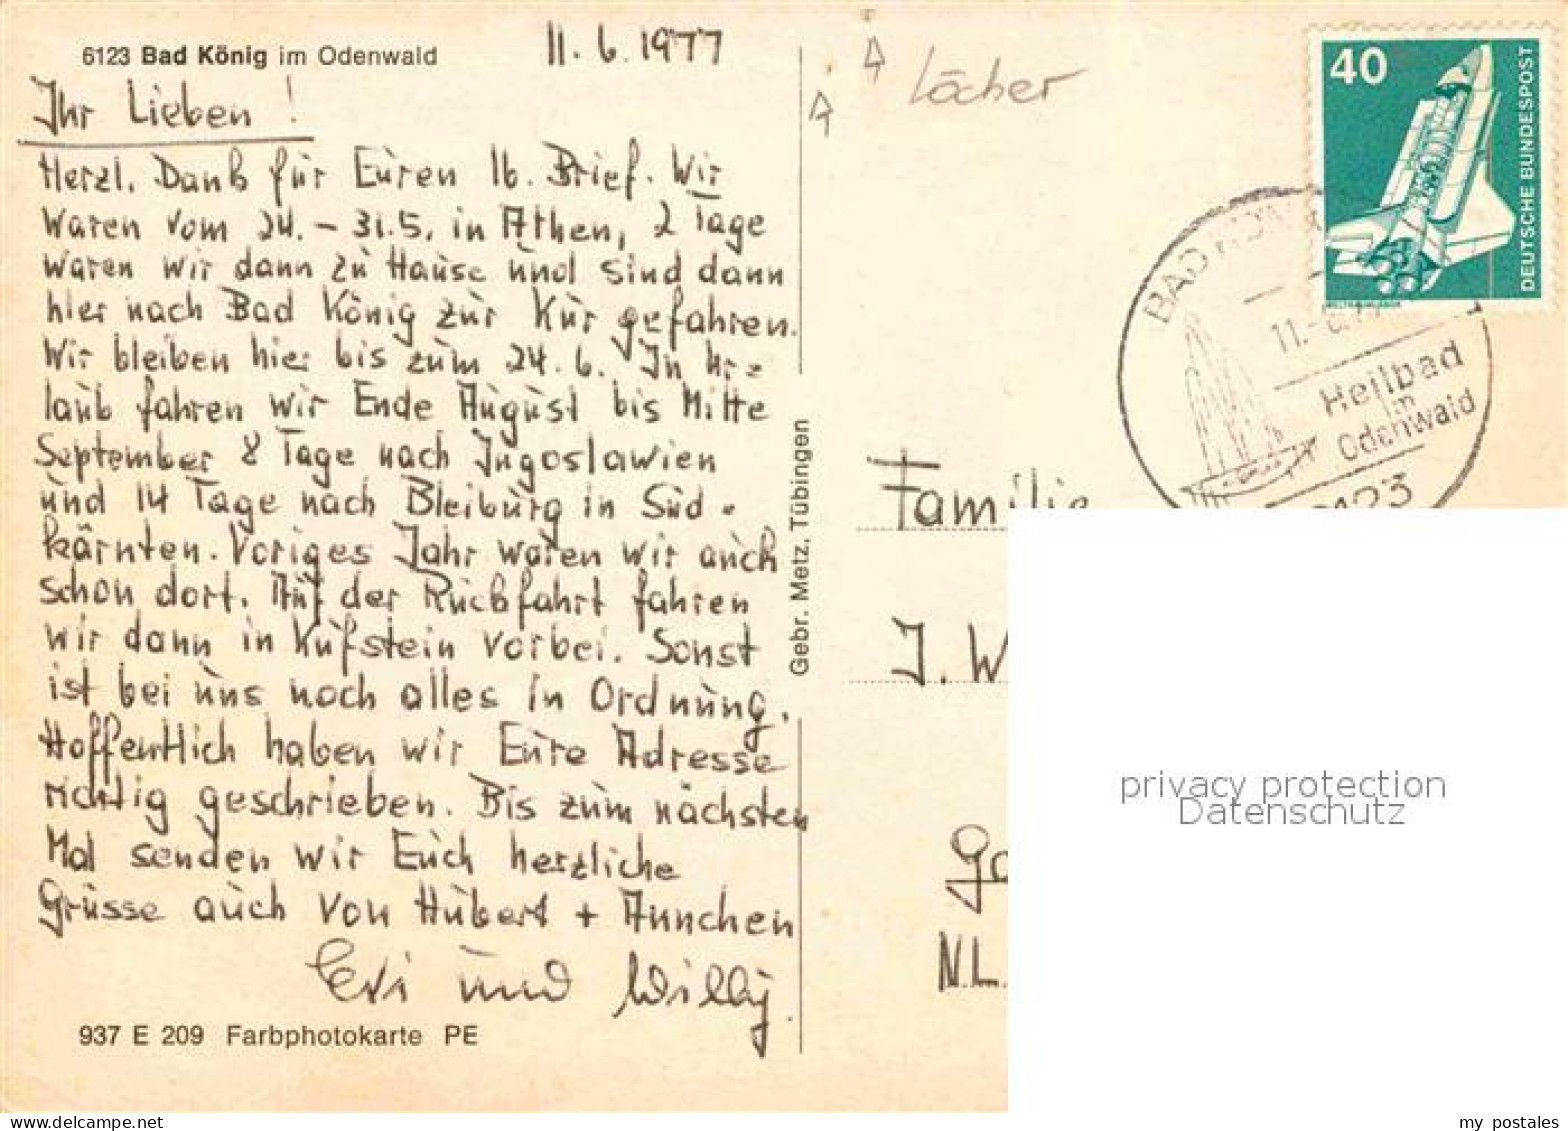 6123 Bad König im Odenwald
11.6.1977
Ihr Lieben!
Herzl. Dank für Euren lb. Brief. Wir
waren vom 24.-31.5. in Athen, 2 Tage
waren wir dann zu Hause und sind dann
hier nach Bad König zur Kur gefahren.
Wir bleiben hier bis zum 24.6. In Ur=
laub fahren wir Ende August bis Mitte
September 8 Tage nach Jugoslawien
und 14 Tage nach Bleiburg in Süd-
kärnten. Voriges Jahr waren wir auch
schon dort. Auf der Rückfahrt fahren
wir dann in Kufstein vorbei. Sonst
ist bei uns noch alles in Ordnung.
Hoffentlich haben wir Eure Adresse
richtig geschrieben. Bis zum nächsten
Mal senden wir Euch herzliche
Grüsse auch von Hubert + Annchen
Evi und Willy.
937 E 209 Farbphotokarte PE
Gebr. Metz, Tübingen
Löcher
40
DEUTSCHE BUNDESPOST
BAD
11.-6.
Heilbad
im
Odenwald
6123
Familie
J. W
N.L.
privacy protection
Datenschutz
my postales